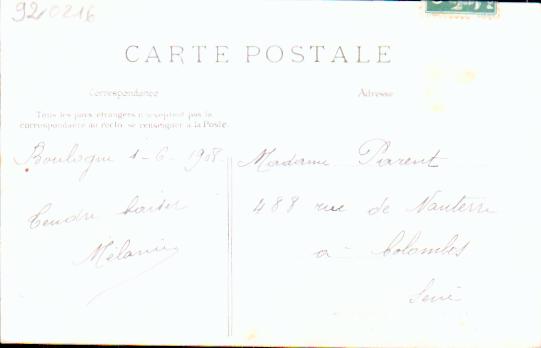 920216
CARTE POSTALE
Correspondance
Adresse
Tous les pays étrangers n'acceptent pas la
correspondance au recto, se renseigner à la Poste.
Boulogne 1-6-1908
Tendre baiser
Mélanie
Madame Parent
488 rue de Nanterre
a Colombes
Seine